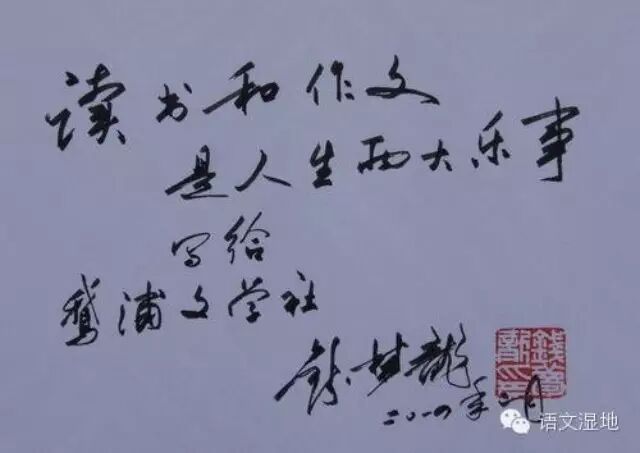 读书和作文
是人生两大乐事
写给
鹅浦文学社
钱梦龙
二〇一四年二月
语文湿地